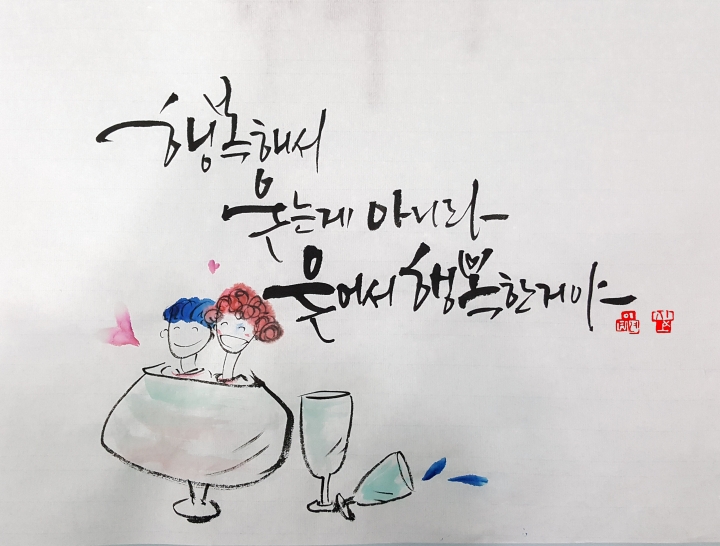 행복해서
웃는게 아니라
웃어서 행복한거야